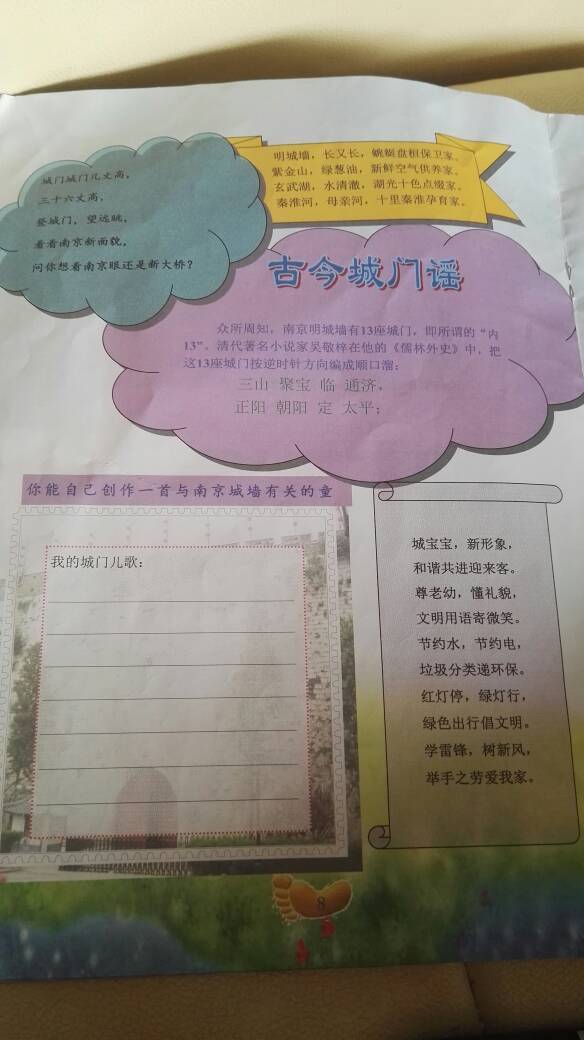 明城墙，长又长，蜿蜒盘桓保卫家。
紫金山，绿葱油，新鲜空气供养家。
玄武湖，水清澈，湖光十色点缀家。
秦淮河，母亲河，十里秦淮孕育家。
城门城门几丈高，
三十六丈高，
登城门，望远眺，
看看南京新面貌，
问你想看南京眼还是新大桥？
古今城门谣
众所周知，南京明城墙有13座城门，即所谓的“内
13”。清代著名小说家吴敬梓在他的《儒林外史》中，把
这13座城门按逆时针方向编成顺口溜：
三山 聚宝 临 通济，
正阳 朝阳 定 太平；
你能自己创作一首与南京城墙有关的童
我的城门儿歌：
城宝宝，新形象，
和谐共进迎来客。
尊老幼，懂礼貌，
文明用语寄微笑。
节约水，节约电，
垃圾分类递环保。
红灯停，绿灯行，
绿色出行倡文明。
学雷锋，树新风，
举手之劳爱我家。
8